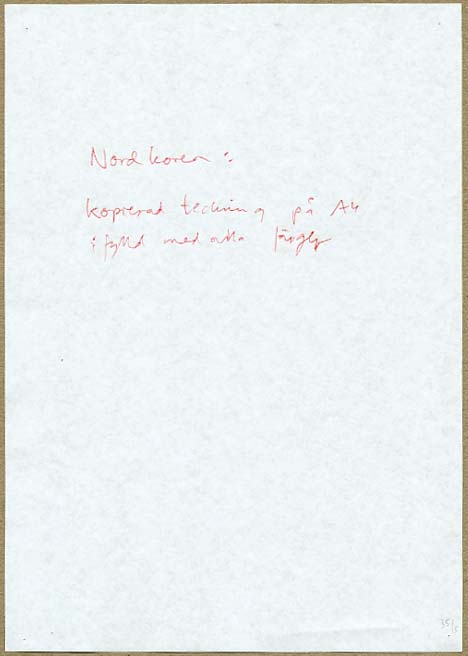 Nordkorea :
kopierad teckning på A4
ifylld med olika färger
35/5